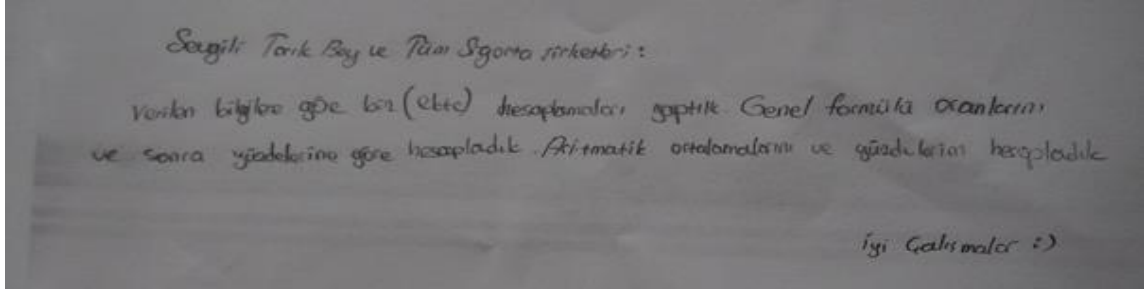 Sevgili Tarık Bey ve Tüm Sigorta şirketleri :
Verilen bilgilere göre biz (ekte) hesaplamaları yaptık Genel formülü oranlarını
ve sonra yüzdelerine göre hesapladık. Aritmatik ortalamalarını ve yüzdelerini hesapladık
İyi Çalışmalar :)